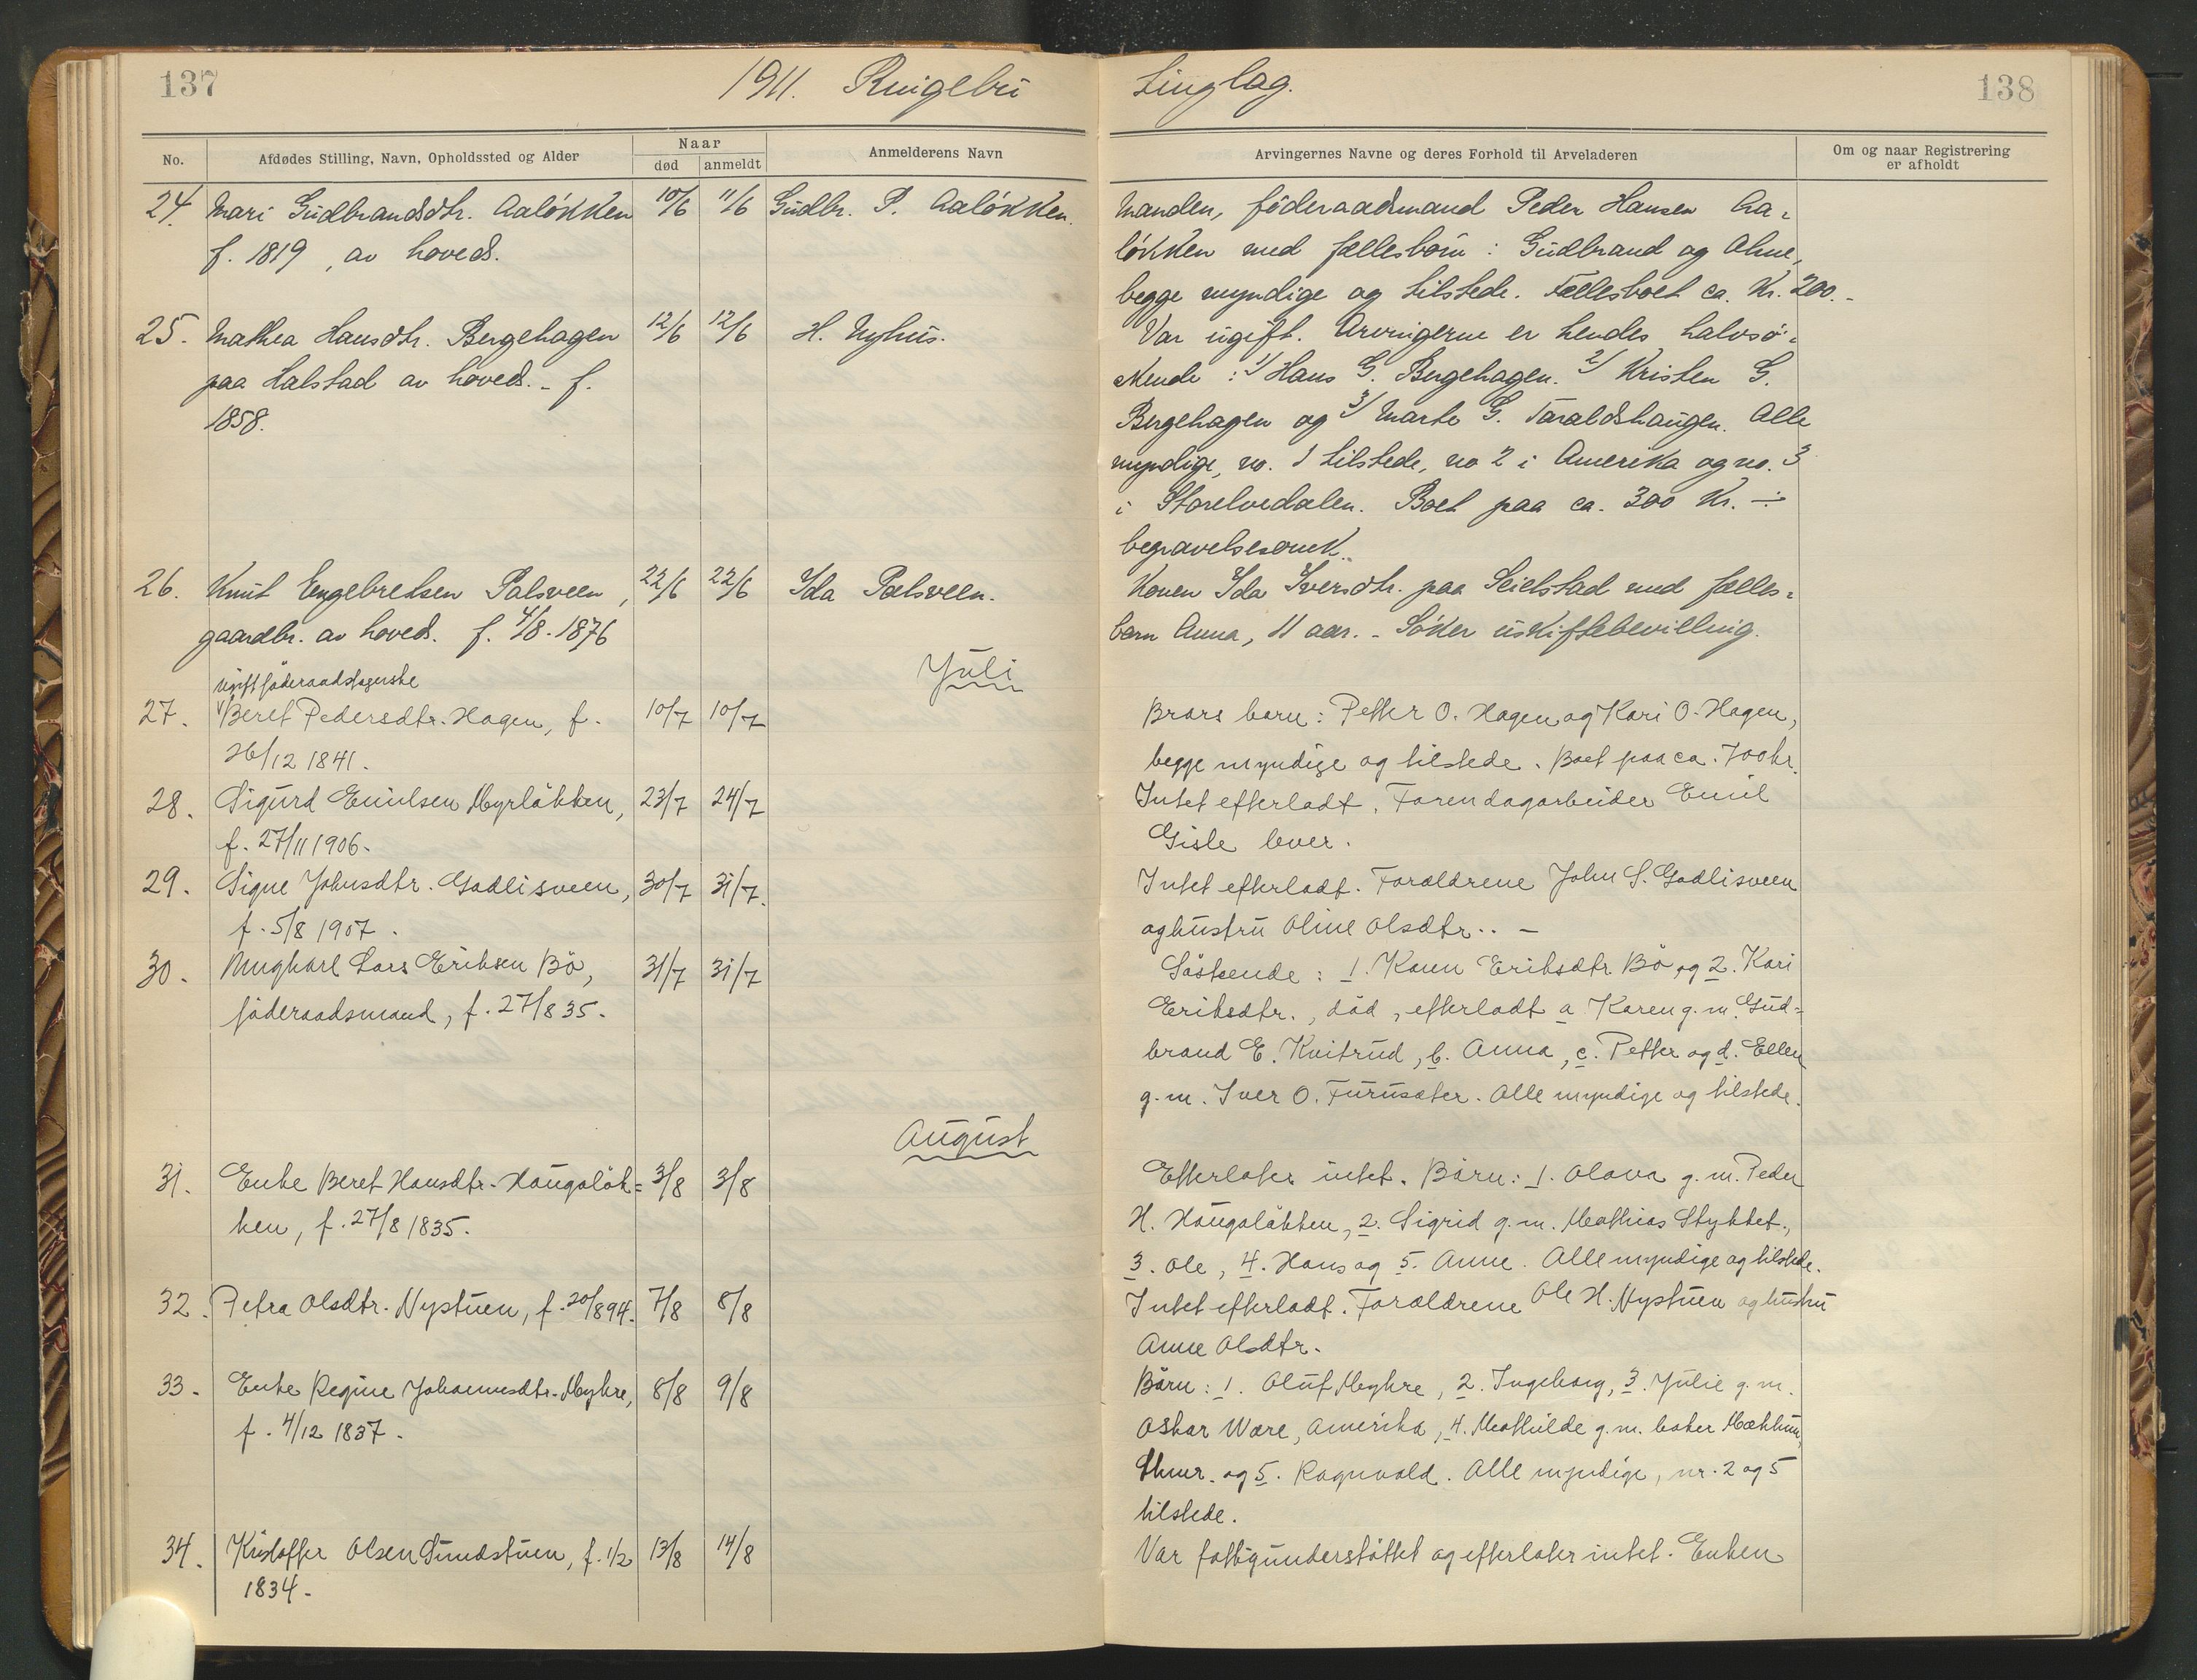 137
1911. Ringebu
Tinglag.
138
No.
Afdødes Stilling, Navn, Opholdssted og Alder
Naar
død
anmeldt
Anmelderens Navn
Arvingernes Navne og deres Forhold til Arveladeren
Om og naar Registrering
er afholdt
24. Mari Gudbrandsdtr. Aaløkken 10/6 11/6 Gudbr. P. Aaløkken.
f. 1819, av hoveds.
Manden, føderaadsmand Peder Hansen Aa=
løkken med fællesbørn: Gudbrand og Ahne,
begge myndige og tilstede. Fællesboet ca. Kr. 200.-
25. Mathea Hansdtr. Bergehagen 12/6 12/6 H. Nyhus.
paa Halstad av hoveds. - f.
1858.
Var ugift. Arvingerne er hendes halvsø=
skende: 1/ Hans G. Bergehagen. 2/ Kristen G.
Bergehagen og 3/ Marte G. Taraldshaugen. Alle
myndige, no. 1 tilstede, no 2 i Amerika og no. 3
i Storelvedalen. Boet paa ca. 300 Kr. ÷
begravelsesomk.
26. Knut Engebretsen Palsveen, 22/6 22/6 Ida Palsveen.
gaardbr. av hoveds. f. 4/8. 1876
Konen Ida Iversdtr. paa Seielstad med fælles=
barn Anna, 11 aar. - Søker uskiftebevilling.
Juli
ugift føderaadstagerske
27. Beret Pedersdtr. Hagen, f. 10/7 10/7
26/12 1841.
Brors børn: Petter O. Hagen og Kari O. Hagen,
begge myndige og tilstede. Boet paa ca. 700 kr.
28. Sigurd Emilsen Myrløkken, 23/7 24/7
f. 27/11 1906.
Intet efterladt. Faren dagarbeider Emil
Gisle lever.
29. Signe Johnsdtr. Gadlisveen, 30/7 31/7.
f. 5/8 1907.
Intet efterladt. Forældrene John S. Gadlisveen
og hustru Oline Olsdtr.. -
30. Ungkarl Lars Eriksen Bø, 31/7 31/7
føderaadsmand, f. 27/8 35.
Søskende: 1. Karen Eriksdtr. Bø og 2. Kari
Eriksdtr., død, efterladt a Karen g. m. Gud=
brand E. Kvitrud, b. Anna, c. Petter og d. Ellen
g. m. Iver O. Furusæter. Alle myndige og tilstede.
August
31. Enke Beret Hansdtr. Haugaløk= 3/8 3/8
ken, f. 27/8 1835.
Efterlater intet. Børn: 1. Olava g. m. Peder
H. Haugaløkken, 2. Sigrid g. m. Mathias Stykket,
3. Ole, 4. Hans og 5. Anne. Alle myndige og tilstede.
32. Petra Olsdtr. Nystuen, f. 20/8 94. 7/8 8/8
Intet efterladt. Forældrene Ole H. Nystuen og hustru
Anne Olsdtr.
33. Enke Regine Johannesdtr. Myhre, 8/8 9/8
f. 4/12 1837.
Børn: 1. Oluf Myhre, 2. Ingeborg, 3. Julie g. m.
Oskar Ware, Amerika, 4. Mathilde g. m. baker
og 5. Ragnvald. Alle myndige, nr. 2 og 5
tilstede.
34. Kristoffer Olsen Sundstuen, f. 1/2 13/8 14/8
1834.
Var fattigunderstøttet og efterlater intet. Enken